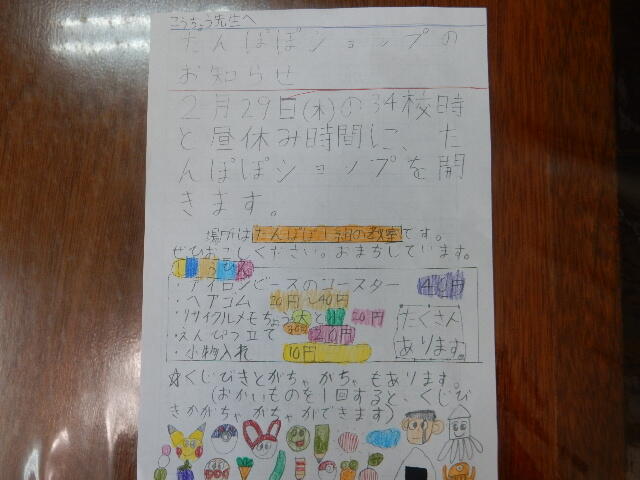 こうちょう先生へ
たんぽぽショップの
お知らせ
2月29日(木)の34校時
と昼休み時間に、た
んぽぽショップを開
きます。
場所はたんぽぽ1組の教室です。
ぜひおこしください。おまちしています。
しょうひん
・アイロンビーズのコースター 40円
・ヘアゴム 20円~40円
・リサイクルメモちょう大と小 20円
30円
・えんぴつ立て 20円
・小物入れ 10円
たくさん
あります。
☆くじびきとがちゃがちゃもあります。
(おかいものを1回すると、くじび
きかがちゃがちゃができます)